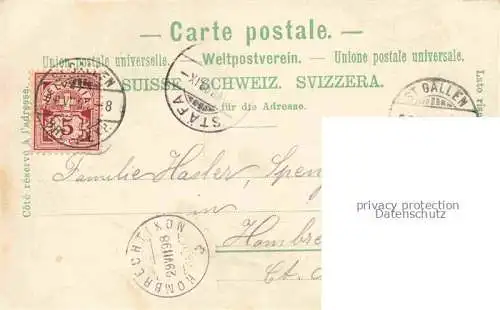 Carte postale.
Union postale universelle. — Weltpostverein. — Unione postale universale.
SUISSE. SCHWEIZ. SVIZZERA.
für die Adresse.
Côté réservé à l'adresse.
Lato
GALLEN
5
STÄFA
ST. GALLEN
Familie Hasler, Spen
in
Hombre
Ct.
HOMBRECHTIKON
29 VII 98
privacy protection
Datenschutz